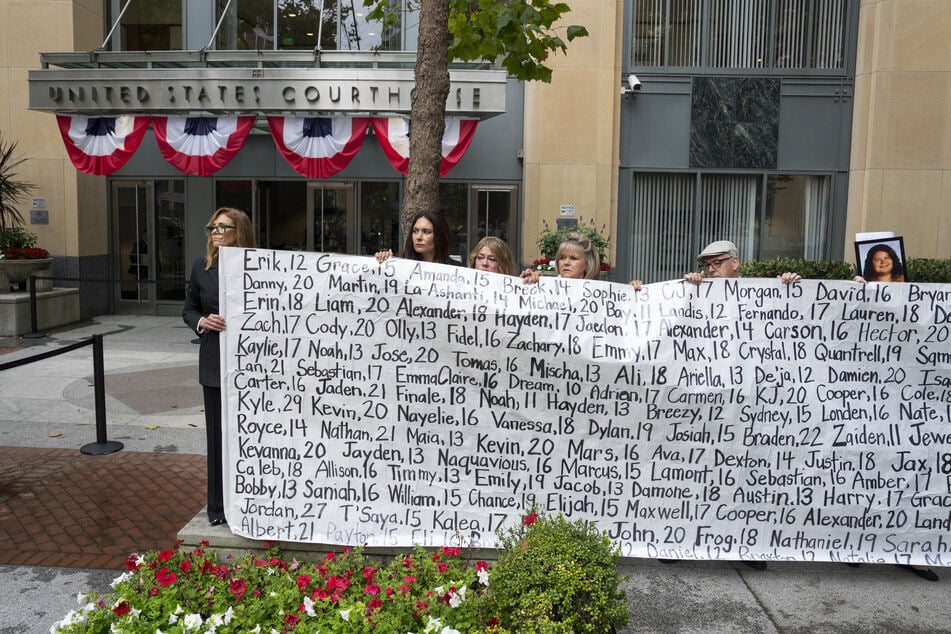 UNITED STATES COURTHOUSE
NOTICE
Erik, 12 Grace, 15 Amanda, 15 Breck, 14 Sophie, 13 CJ, 17 Morgan, 15 David, 16 Bryan
Danny, 20 Martin, 19 La-Ashanti, 14 Michael, 20 Bay, 11 Landis, 12 Fernando, 17 Lauren, 18
Erin, 18 Liam, 20 Alexander, 18 Hayden, 17 Jaedon, 17 Alexander, 14 Carson, 16 Hector, 20
Zach, 17 Cody, 20 Olly, 13 Fidel, 16 Zachary, 18 Emmy, 17 Max, 18 Crystal, 18 Quantrell, 19 Sam
Kaylie, 17 Noah, 13 Jose, 20 Tomas, 16 Mischa, 13 Ali, 18 Ariella, 13 De'ja, 12 Damien, 20
Ian, 21 Sebastian, 17 EmmaClaire, 16 Dream, 10 Adrien, 17 Carmen, 16 KJ, 20 Cooper, 16 Cole,
Carter, 16 Jaden, 21 Finale, 18 Noah, 11 Hayden, 13 Breezy, 12 Sydney, 15 Londen, 16 Nate,
Kyle, 29 Kevin, 20 Nayelie, 16 Vanessa, 18 Dylan, 19 Josiah, 15 Braden, 22 Zaiden, 11
Royce, 14 Nathan, 21 Maia, 13 Kevin, 20 Mars, 16 Ava, 17 Dexton, 14 Justin, 18 Jax, 18
Kevanna, 20 Jayden, 13 Naquavious, 16 Marcus, 15 Lamont, 16 Sebastian, 16 Amber, 17
Caleb, 18 Allison, 16 Timmy, 13 Emily, 19 Jacob, 13 Damone, 18 Austin, 13 Harry, 17
Bobby, 13 Saniah, 16 William, 15 Chance, 19 Elijah, 15 Maxwell, 17 Cooper, 16 Alexander, 20
Jordan, 27 T'Saya, 15 Kalea, 17 John, 20 Frog, 18 Nathaniel, 19 Sarah,
Albert, 21 Payton, 15 Eli Daniel,